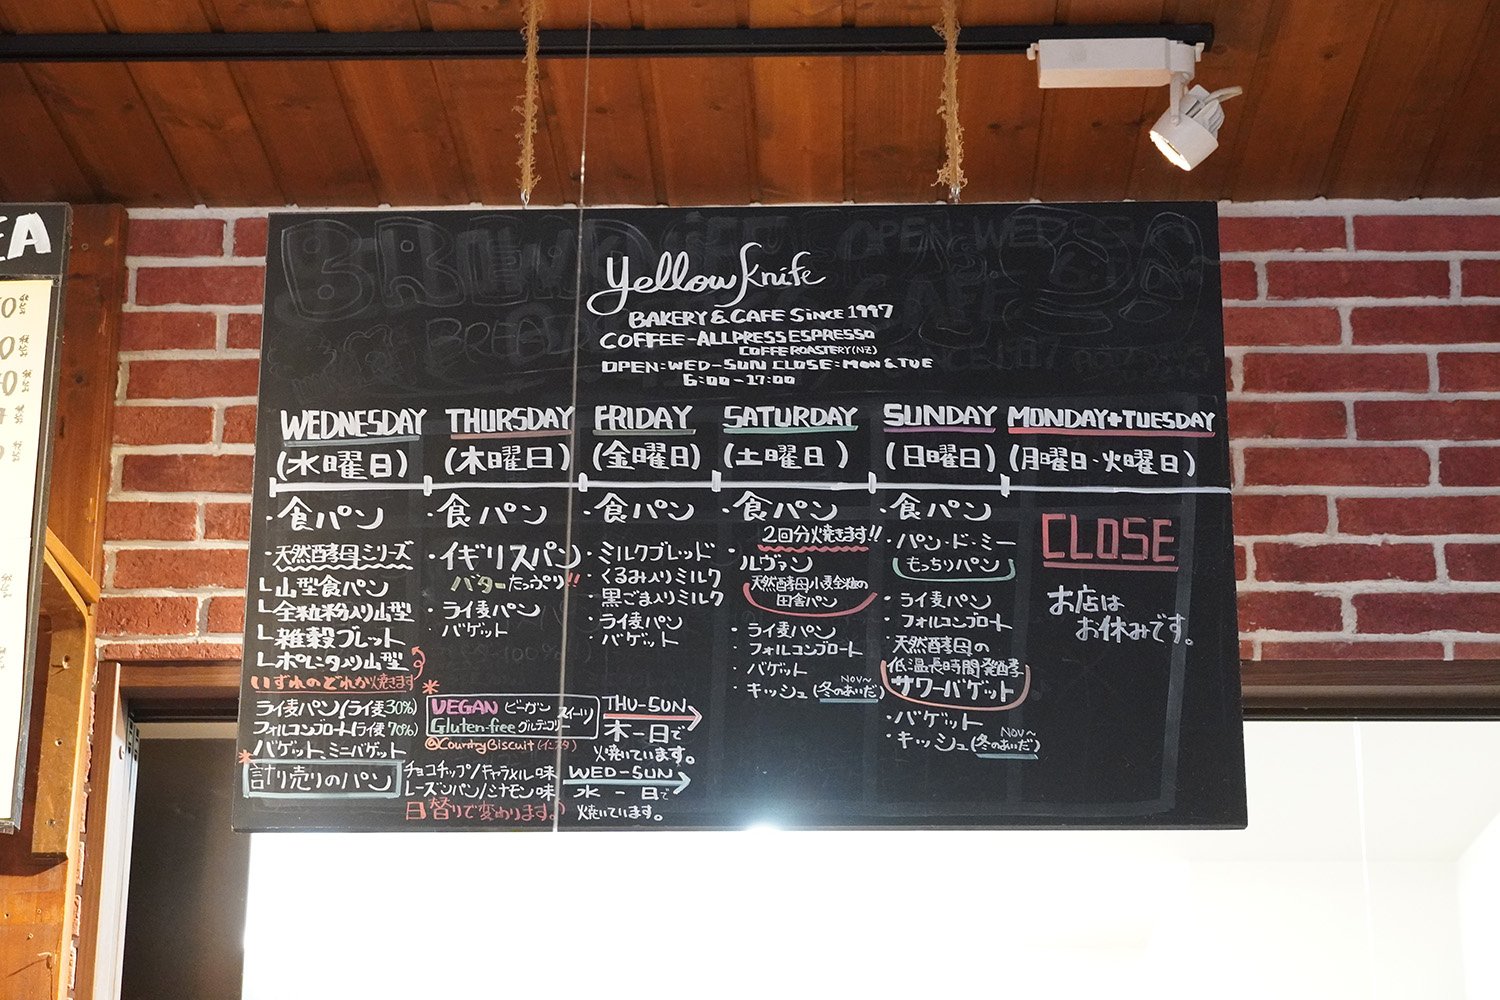 EA
Yellowknife
BAKERY & CAFE Since 1997
COFFEE-ALLPRESS ESPRESSO
COFFE ROASTERY(NZ)
OPEN:WED-SUN CLOSE:MON & TUE
6:00-17:00
WEDNESDAY
(水曜日)
・食パン
・天然酵母シリーズ
└山型食パン
└全粒粉入り山型
└雑穀ブレット
└ポレンタ入り山型
いずれのどれか焼きます
ライ麦パン(ライ麦30%)
フォルコンブロート(ライ麦70%)
バゲット ミニバゲット
*計り売りのパン
チョコチップ/キャラメル味
レーズンパン/シナモン味
日替りで変わります♪
WED-SUN
水-日で
焼いています。
THURSDAY
(木曜日)
・食パン
・イギリスパン
バターたっぷり!!
・ライ麦パン
バゲット
*
VEGAN ビーガン
Gluten-free グルテンフリー
スイーツ
@CountryBiscuit(インスタ)
THU-SUN
木-日で
焼いています。
FRIDAY
(金曜日)
・食パン
・ミルクブレッド
・くるみ入りミルク
・黒ごま入りミルク
・ライ麦パン
・バゲット
SATURDAY
(土曜日)
・食パン
2回分焼きます!!
・ルヴァン
天然酵母小麦全粒の
田舎パン
・ライ麦パン
・フォルコンブロート
・バゲット
・キッシュ(冬のあいだ)
NOV~
SUNDAY
(日曜日)
・食パン
・パン・ド・ミー
もっちりパン
・ライ麦パン
・フォルコンブロート
・天然酵母の
低温長時間発酵
サワーバゲット
・バゲット
・キッシュ(冬のあいだ)
NOV~
MONDAY+TUESDAY
(月曜日・火曜日)
CLOSE
お店は
お休みです。